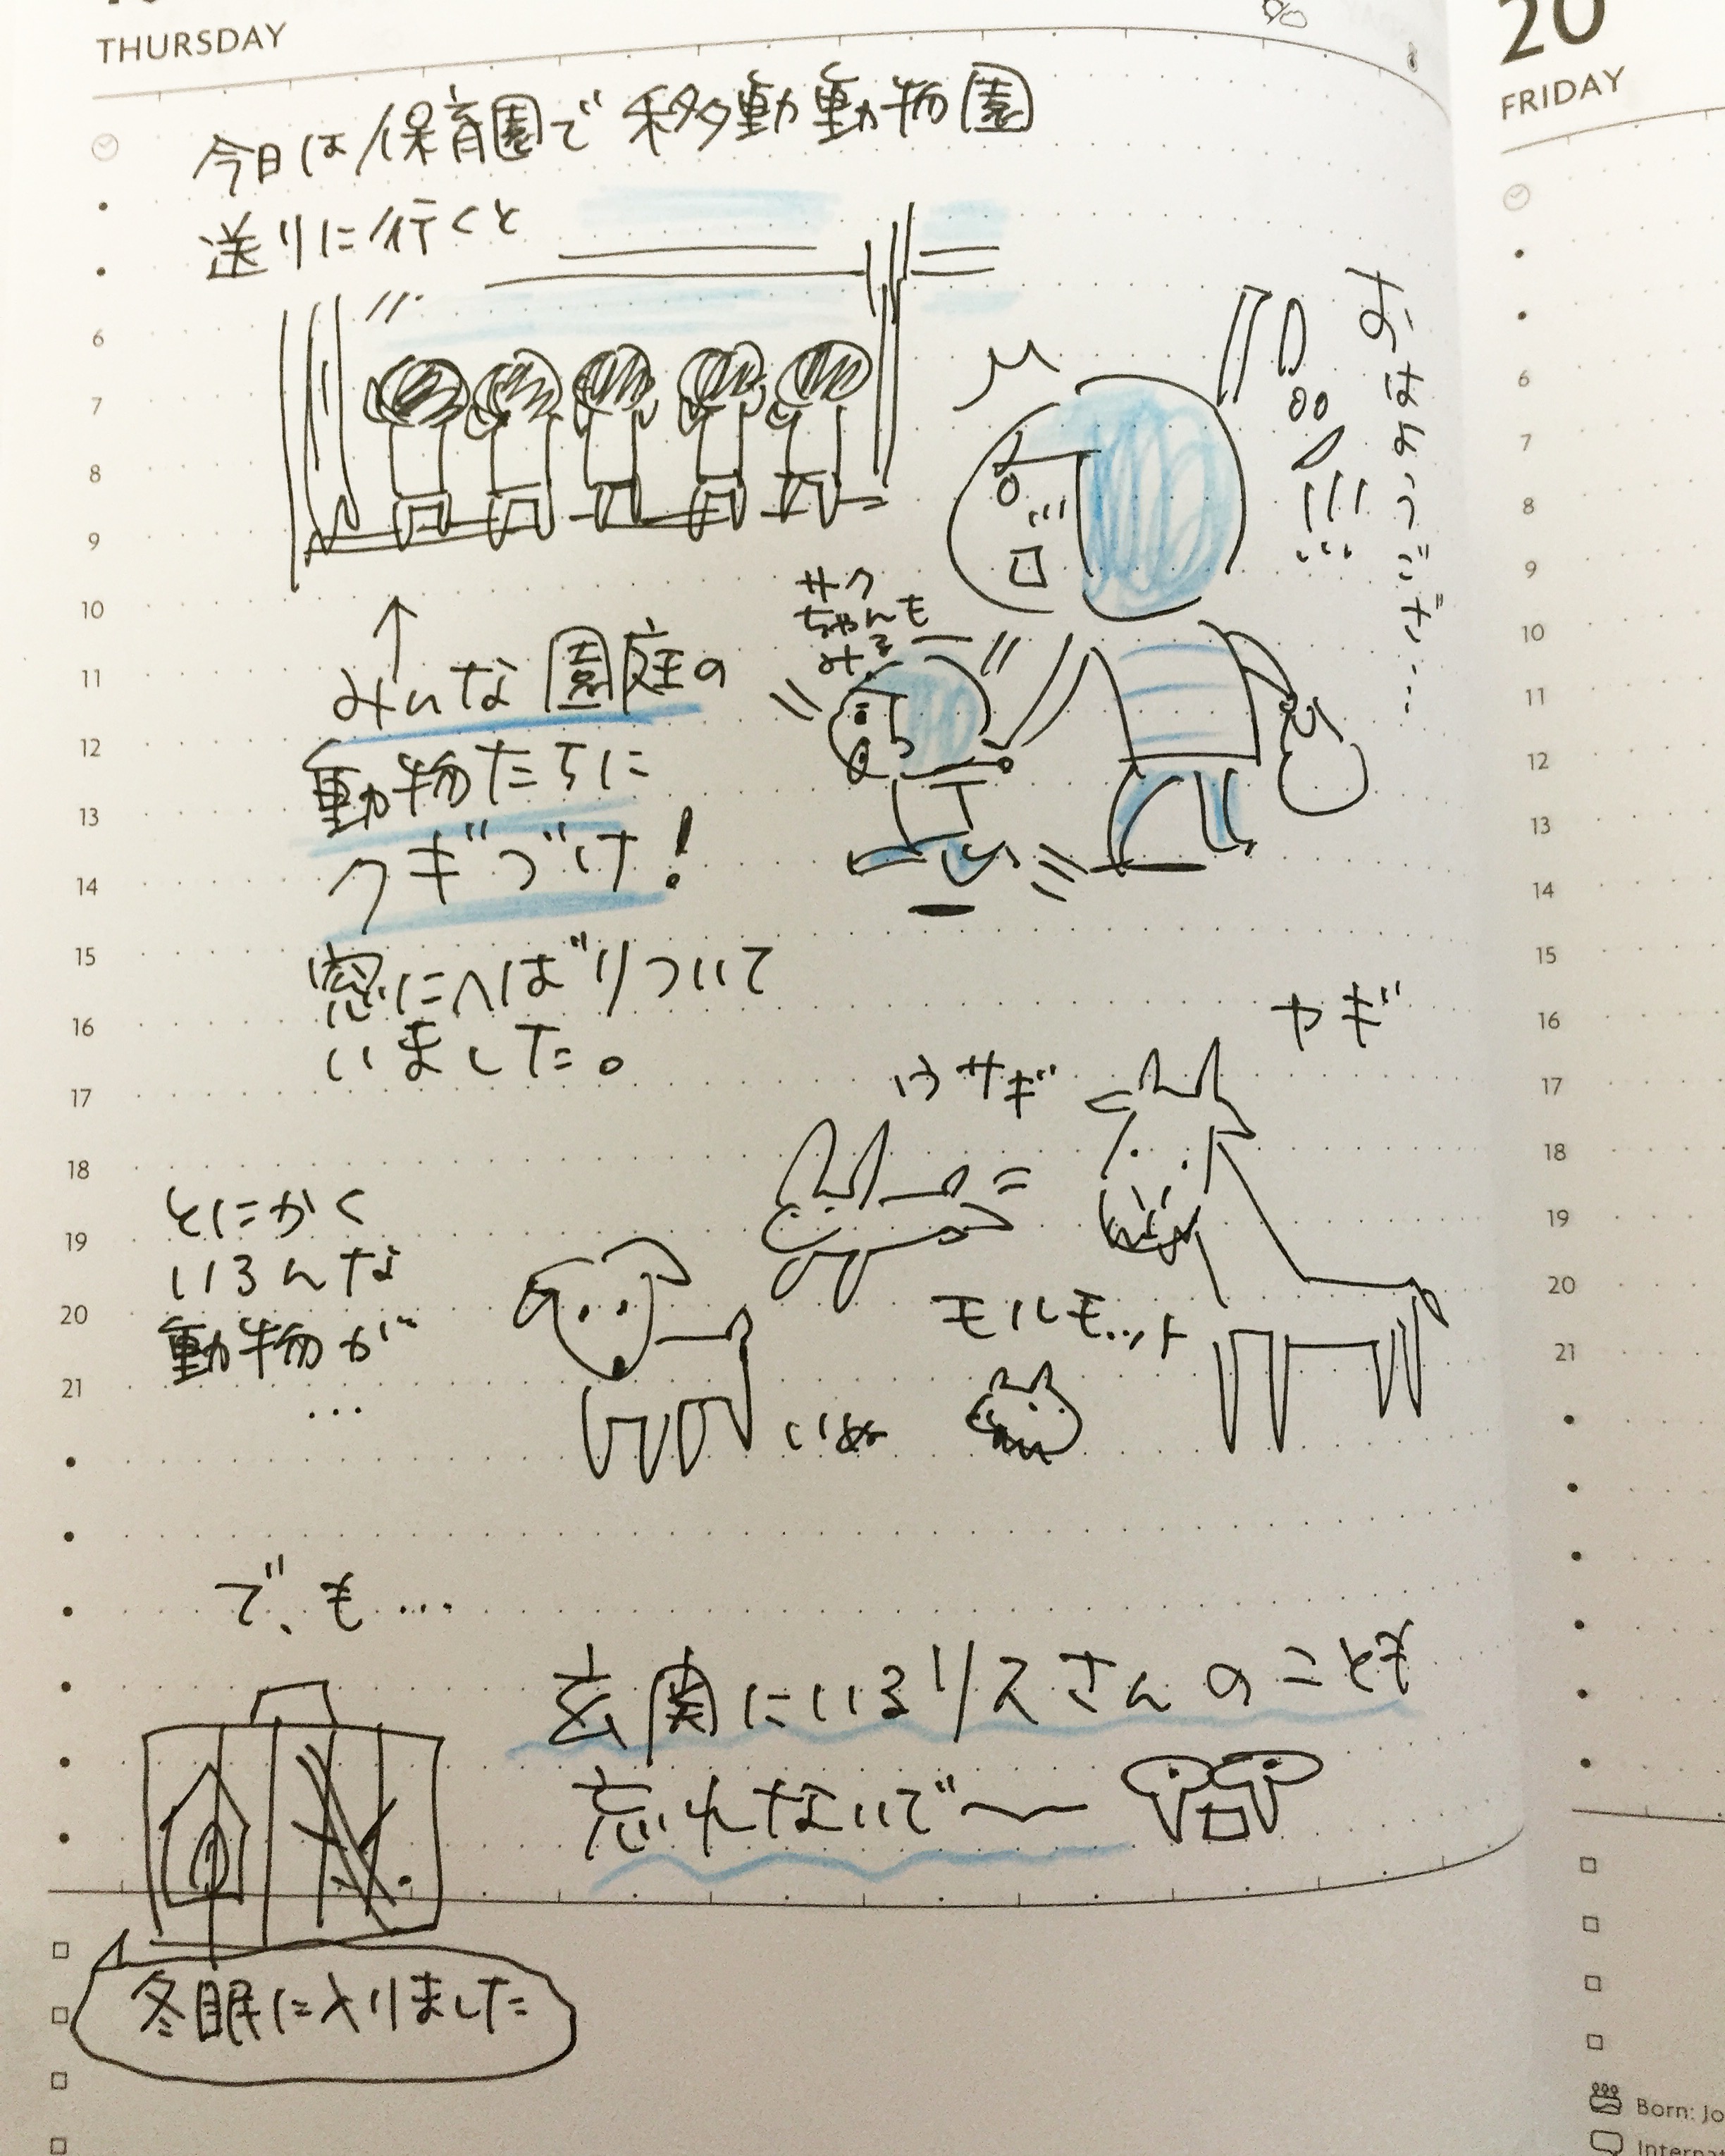 THURSDAY
今日は保育園で移動動物園
送りに行くと
おはようござ……
サク
ちゃんも
みる
↑
みんな園庭の
動物たちに
クギづけ!
窓にへばりついて
いました。
ヤギ
ウサギ
とにかく
いろんな
動物が
…
モルモット
いぬ
でも…
玄関にいるリスさんのことも
忘れないで〜
冬眠に入りました
6
7
8
9
10
11
12
13
14
15
16
17
18
19
20
21
20
FRIDAY
6
7
8
9
10
11
12
13
14
15
16
17
18
19
20
21
Born: Jo
Interna